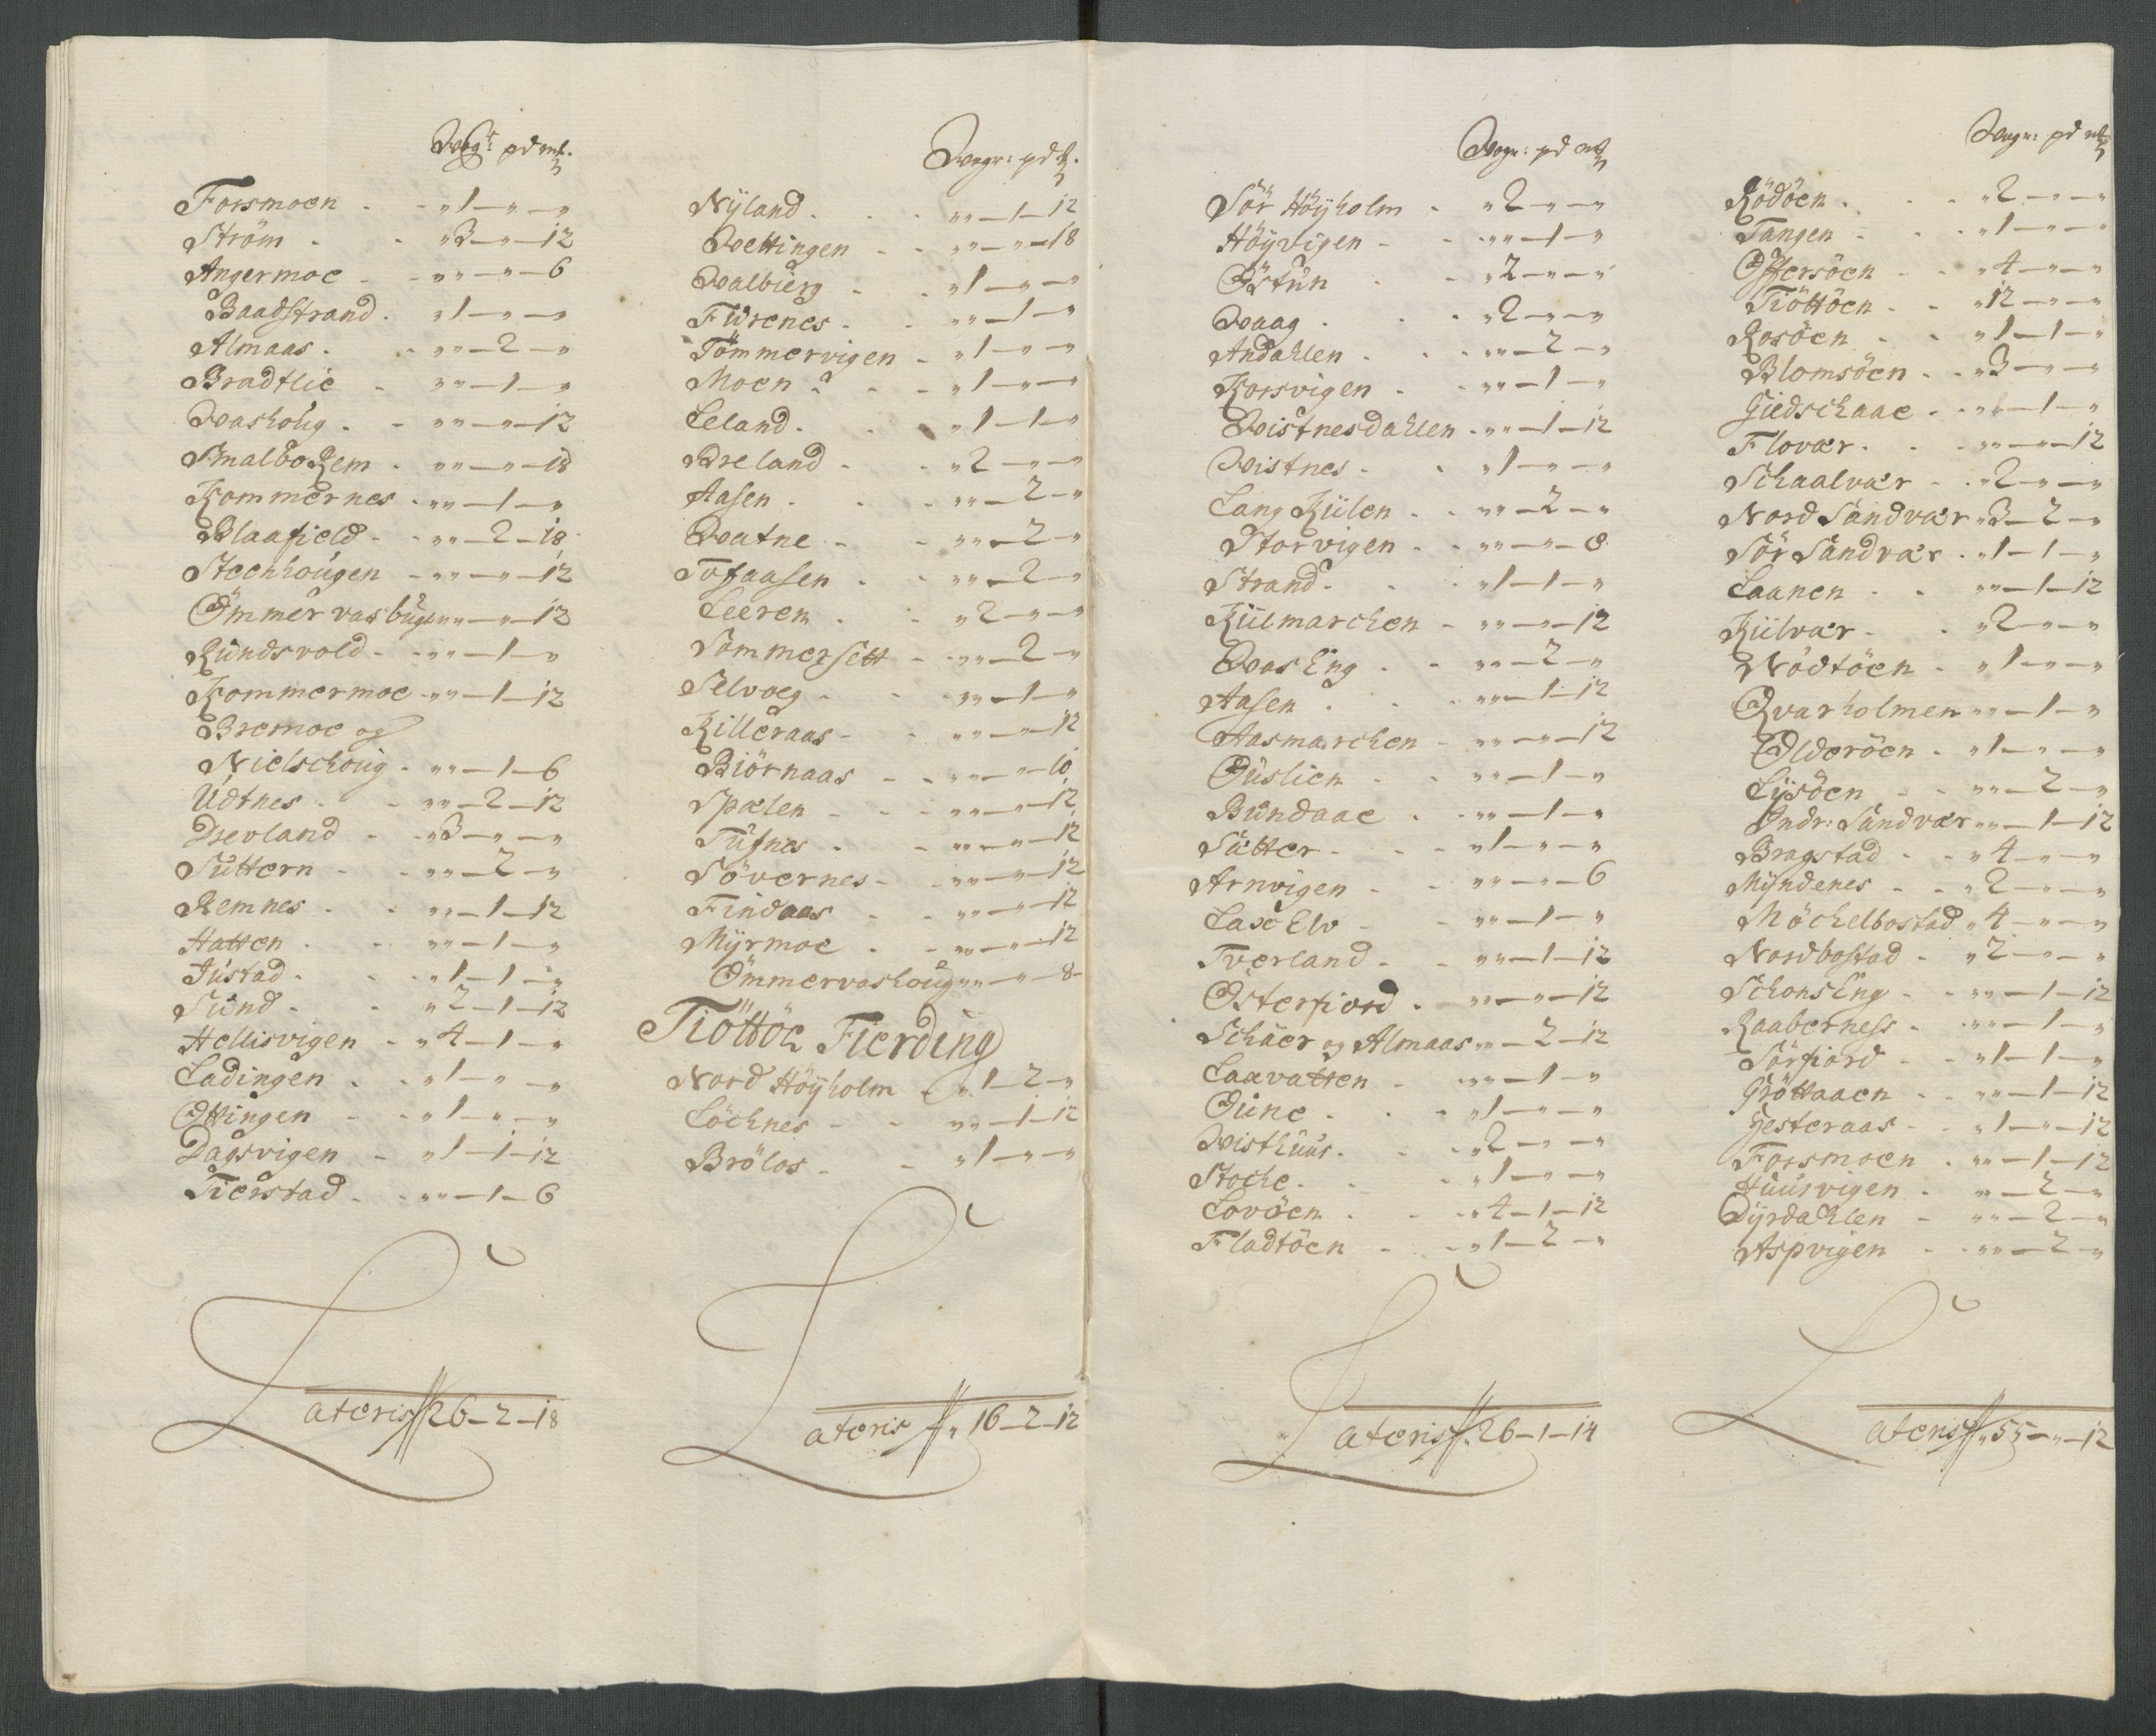 Wogr: pd mk.
Forsmoen - - „ 1 - „ - „
Ström - - „ 3 - „ - 12
Angermoe - - „ „ - „ - 6
Baadstrand - „ 1 - „ - „
Almaas - - „ „ - 2 - „
Bradtlie - „ „ - 1 - „
Washoug - - „ „ - „ - 12
SmalboRem - „ „ - „ - 18
Kommernes - „ „ - 1 - „
Blaafield - - „ „ - 2 - 18
Steenhougen - „ „ - „ - 12
Ömmervasbugt „ „ - „ - 12
Rundsvold - - „ „ - 1 - „
Kommermoe - „ „ - 1 - 12
Bremoe og
Nielschoug - „ „ - 1 - 6
Udtnes - - „ „ - 2 - 12
Drevland - - „ 3 - „ - „
Suttern - - „ „ - 2 - „
Remnes - - „ „ - 1 - 12
Hatten - - „ „ - 1 - „
Justad - - „ 1 - 1 - „
Sund - - „ 2 - 1 - 12
Hellisvigen - „ 4 - 1 - „
Ladingen - - „ 1 - „ - „
Ottingen - - „ 1 - „ - „
Dagsvigen - „ 1 - 1 - 12
Tierstad - - „ „ - 1 - 6
Lateris 26 - 2 - 18
Wogr: pd mk.
Nyland - - „ „ - 1 - 12
Wettingen - - „ „ - „ - 18
Walbierg - - „ 1 - „ - „
Furenes - - „ „ - 1 - „
Tömmervigen - „ 1 - „ - „
Moen - - „ 1 - „ - „
Leland - - „ 1 - 1 - „
Breland - - „ 2 - „ - „
Aasen - - „ „ - 2 - „
Watne - - „ „ - 2 - „
Tofaasen - - „ „ - 2 - „
Leeren - - „ 2 - „ - „
Sommersett - „ „ - 2 - „
Selvoeg - - „ „ - 1 - „
Killeraas - - „ „ - „ - 12
Biörnaas - - „ „ - „ - 10
Spælen - - „ „ - „ - 12
Tufnes - - „ „ - „ - 12
Sövernes - - „ „ - „ - 12
Findaas - - „ „ - „ - 12
Myrmoe - - „ „ - „ - 12
Ömmervashoug „ „ - „ - 8
Tiöttöe Fierding
Nord Höyholm - „ 1 - 2 - „
Löchnes - - „ „ - 1 - 12
Brölos - - „ 1 - „ - „
Lateris „ 16 - 2 - 12
Wogr: pd mk
Sör Höyholm - „ 2 - „ - „
Höyvigen - - „ „ - 1 - „
Östun - - „ 2 - „ - „
Waag - - „ 2 - „ - „
Andahlen - - „ „ - 2 - „
Korsvigen - - „ „ - 1 - „
Wistnesdahlen - „ „ - 1 - 12
Wistnes - - „ 1 - „ - „
Lang Kiilen - - „ „ - 2 - „
Storvigen - - „ „ - „ - 8
Strand - - „ 1 - 1 - „
Kiilmarchen - „ „ - „ - 12
WasEng - - „ „ - 2 - „
Aasen - - „ „ - 1 - 12
Aasmarchen - „ „ - „ - 12
Ouslien - - „ „ - 1 - „
Bundaae - - „ „ - 1 - „
Sætter - - „ 1 - „ - „
Arnvigen - - „ „ - „ - 6
Laxelv - - „ „ - 1 - „
Tverland - - „ „ - 1 - 12
Österfiord - „ „ - „ - 12
Schaer og Almaas „ „ - 2 - 12
Laxvatten - „ „ - 1 - „
Oune - - „ 1 - „ - „
Wisthuus - - „ 2 - „ - „
Stoche - - „ 1 - „ - „
Lovöen - - „ 4 - 1 - 12
Fladtöen - - „ 1 - 2 - „
Lateris „ 26 - 1 - 14
Wogr: pd mk
Rödöen - - „ 2 - „ - „
Tangen - - „ 1 - „ - „
Offersöen - - „ 4 - „ - „
Tiöttöen - - „ 12 - „ - „
Rosöen - - „ 1 - 1 - „
Blomsöen - - „ 3 - „ - „
Giedschaae - „ „ - 1 - „
Flovær - - „ „ - „ - 12
Schaalvær - - „ 2 - „ - „
Nord Sandvær „ 3 - 2 - „
Sör Sandvær - „ 1 - 1 - „
Laanen - - „ „ - 1 - 12
Kiilvær - - „ 2 - „ - „
Nödtöen - „ 1 - „ - „
Qvarholmen „ „ - 1 - „
Olderöen - „ 1 - „ - „
Lysöen - - „ „ - 2 - „
Indr: Sandvær „ „ - 1 - 12
Bragstad - - „ 4 - „ - „
Myndenes - - „ 2 - „ - „
Möchelbostad „ 4 - „ - „
Nordbostad - „ 2 - „ - „
SchonsEng - - „ „ - 1 - 12
Raaberness - „ „ - 1 - „
Sörfiord - - „ 1 - 1 - „
Gröttaaen - - „ „ - 1 - 12
Gesteraas - - „ 1 - „ - 12
Forsmoen - „ „ - 1 - 12
Huusvigen - „ „ - 2 - „
Dyrdahlen - „ „ - 2 - „
Aspvigen - - „ „ - 2 - „
Lateris „ 55 - „ - 12